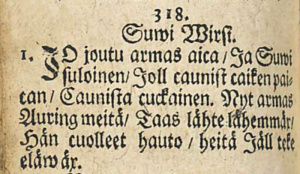 318.
Suwi Wirsi.
1. JO joutu armas aica/ Ja Suwi
suloinen/ Joll caunist caiken pai-
can/ Caunista cuckainen. Nyt armas
Auring meitä/ Taas lähte lähemmär/
Hän cuolleet hauto/ heitä Jäll teke
eläwäx.